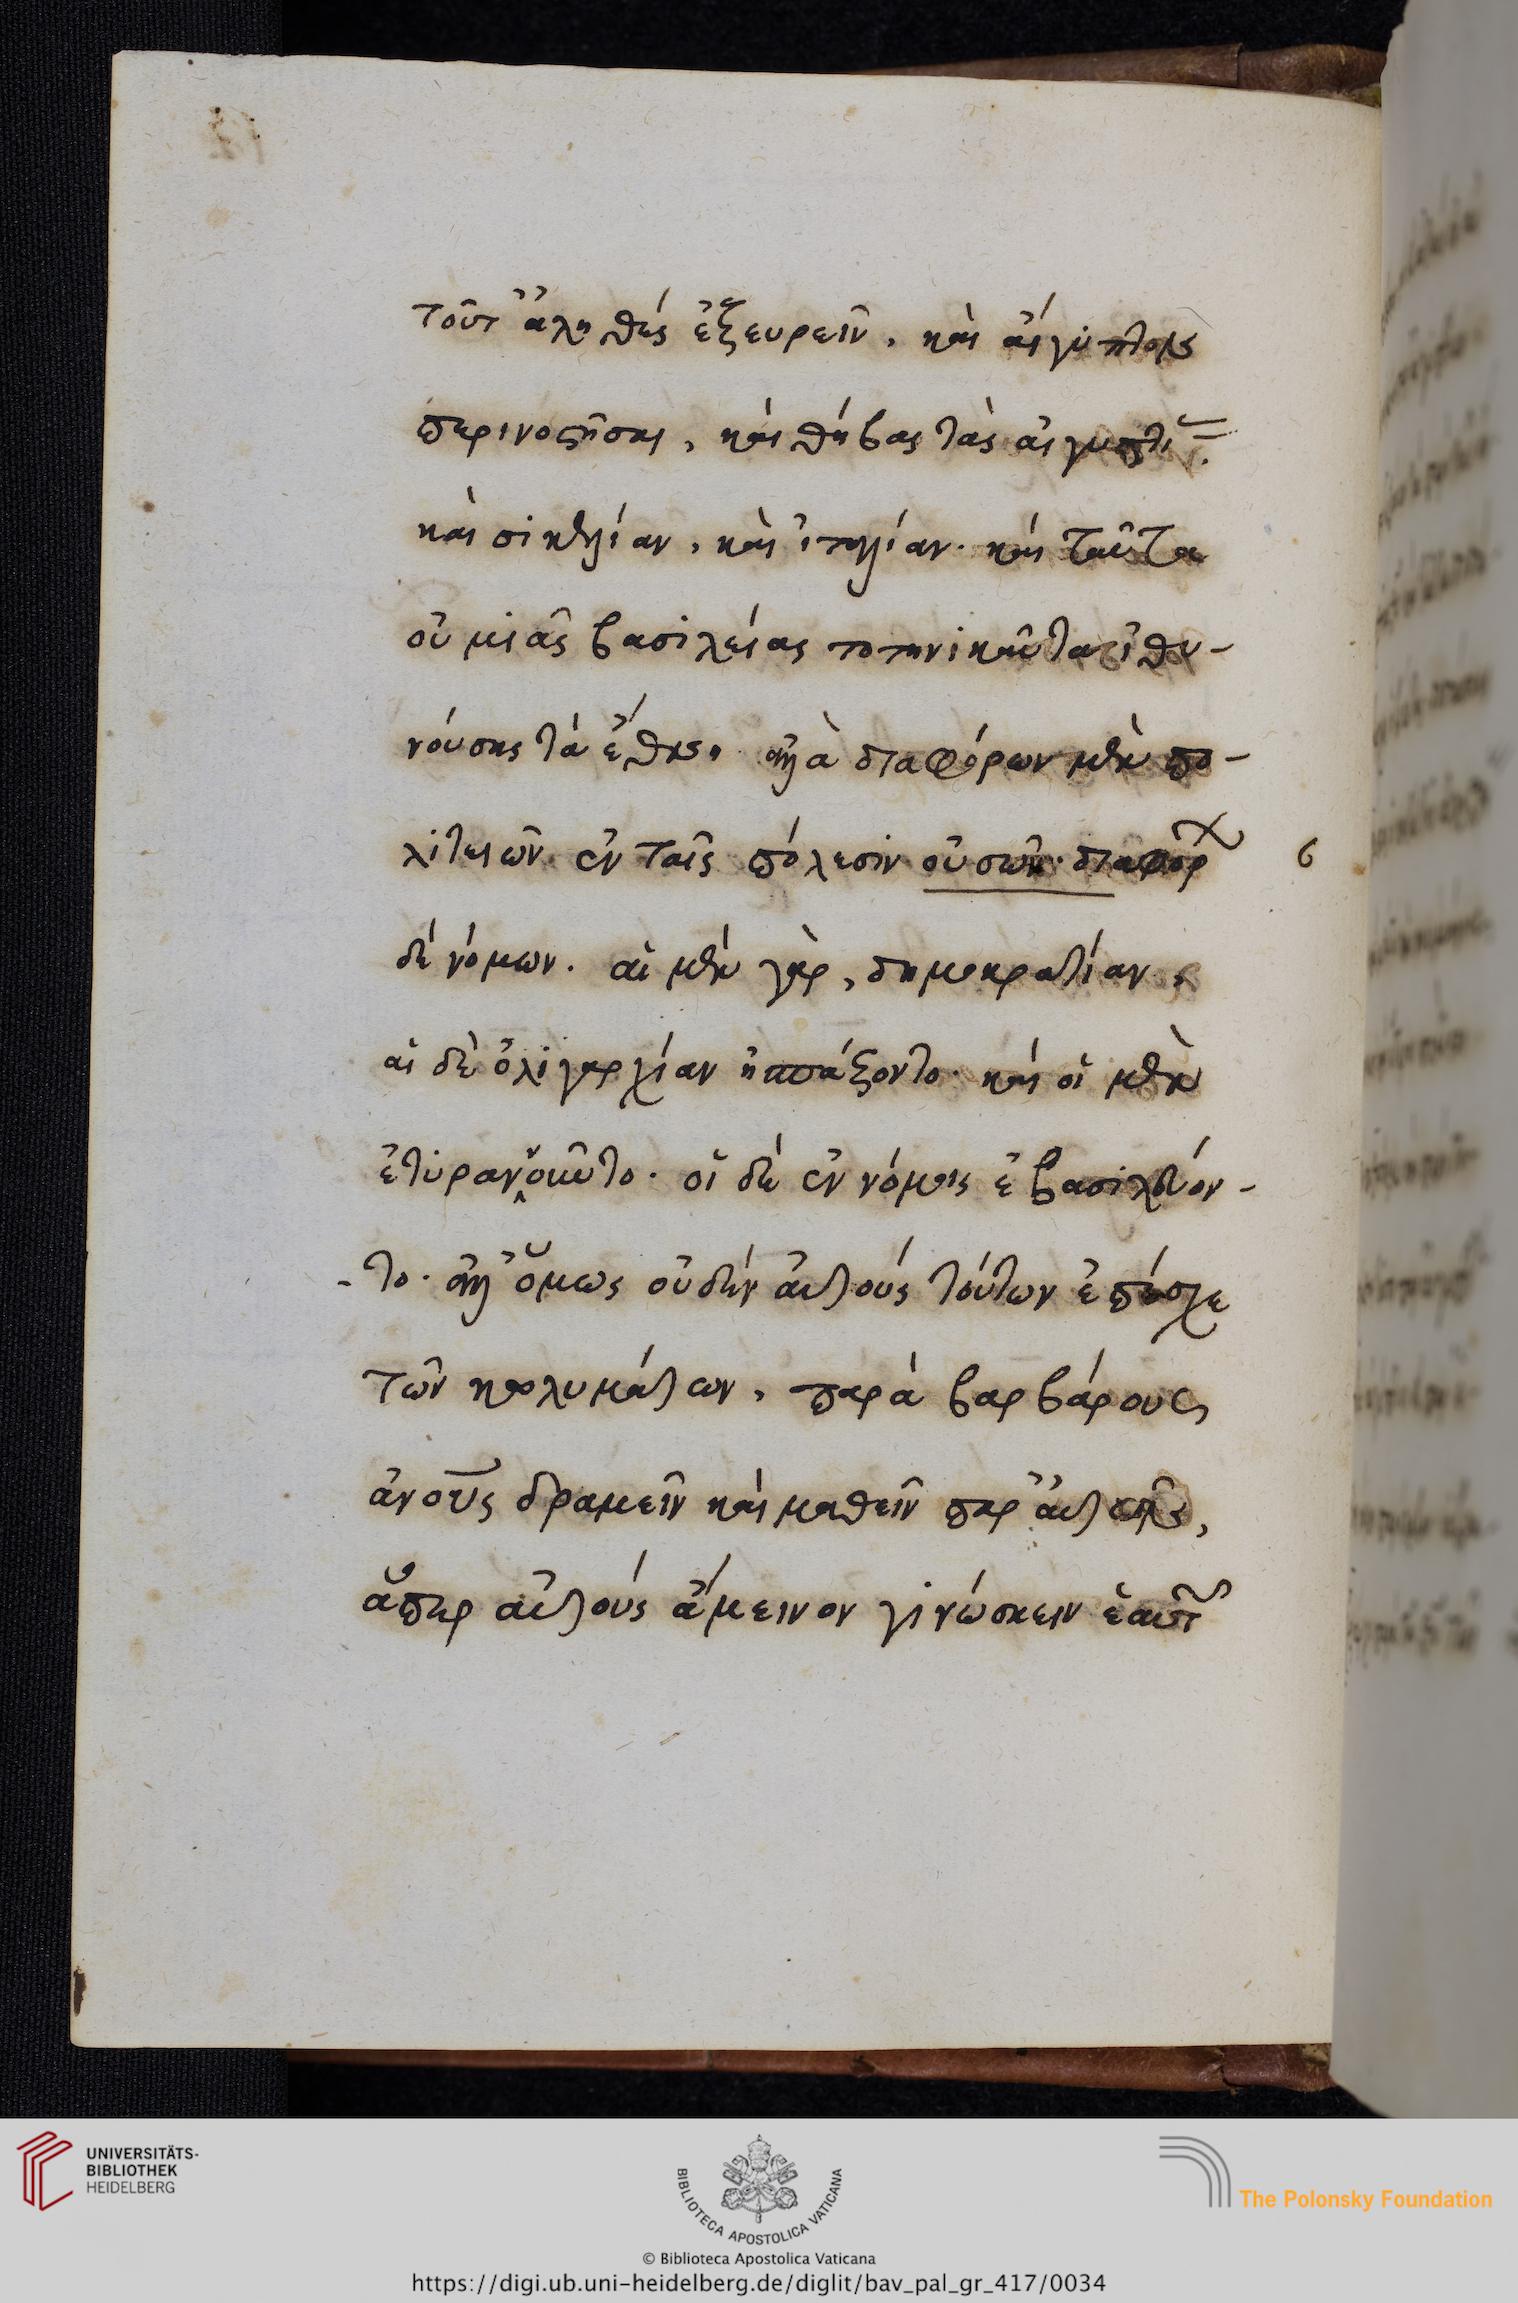 τοῦτ' ἀληθὲς ἐξευρεῖν, καὶ αἴγύπτοις
περινοστῆσαι, καὶ θήβας τὰς αἰγυπτί
καὶ σικελίαν, καὶ ἰταλίαν· καὶ ταῦτα
οὐ μιᾶς βασιλείας τοτηνικαῦτα ἰθυ-
νούσης τὰ ἔθνη· ἀλλὰ διαφόρων μὲν πο-
λιτειῶν ἐν ταῖς πόλεσιν οὐσῶν· διαφόρ
6
δὲ νόμων. αἱ μὲν γὰρ, δημοκρατίαν,
αἱ δὲ ὀλιγαρχίαν ἠσπάζοντο· καὶ οἱ μὲν
οἱ δὲ ἐν νόμοις ἐβασιλεύον-
-το· ἀλλ' ὅμως οὐδὲν αὐτοὺς τούτων ἐπέσχε
τῶν κωλυμάτων, παρὰ βαρβάρους
ἀνοὺς δραμεῖν καὶ μαθεῖν παρ' αὐτοῖς,
ἅπερ αὐτοὺς ἄμεινον γινώσκειν ἑαυτ
UNIVERSITÄTS-
BIBLIOTHEK
HEIDELBERG
BIBLIOTECA APOSTOLICA VATICANA
The Polonsky Foundation
© Biblioteca Apostolica Vaticana
https://digi.ub.uni-heidelberg.de/diglit/bav_pal_gr_417/0034